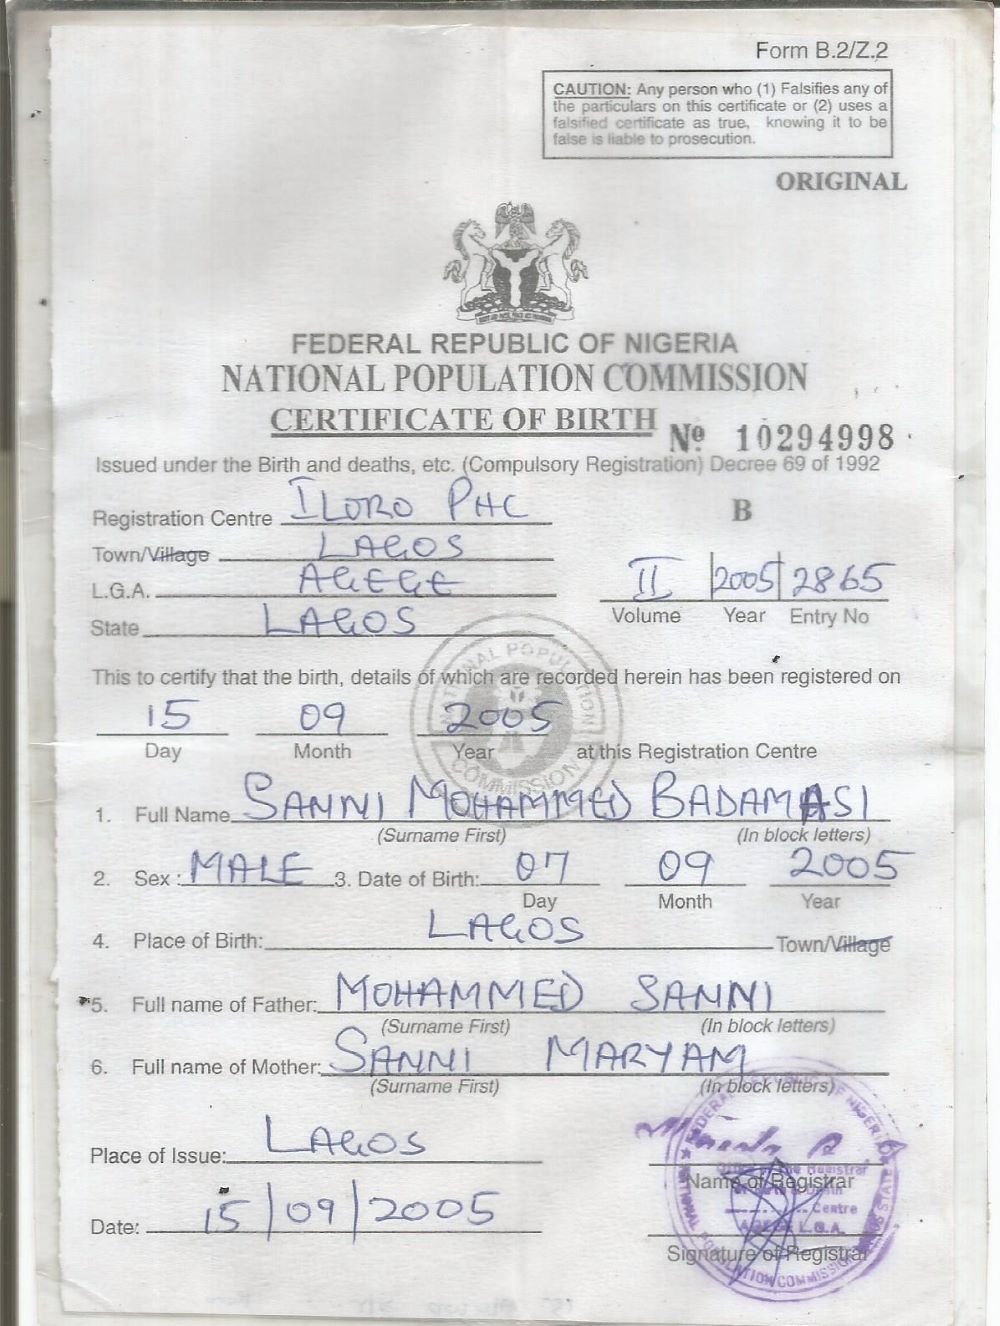 Form B.2/Z.2
CAUTION: Any person who (1) Falsifies any of
the particulars on this certificate or (2) uses a
falsified certificate as true, knowing it to be
false is liable to prosecution.
ORIGINAL
FEDERAL REPUBLIC OF NIGERIA
NATIONAL POPULATION COMMISSION
CERTIFICATE OF BIRTH
Nº 10294998
Issued under the Birth and deaths, etc. (Compulsory Registration) Decree 69 of 1992
Registration Centre ILORO PHC
B
Town/Village LAGOS
L.G.A. AGEGE
II 2005 2865
Volume Year Entry No
State LAGOS
NATIONAL POPULATION COMMISSION
This to certify that the birth, details of which are recorded herein has been registered on
15 09 2005
Day Month Year at this Registration Centre
1. Full Name SANNI MOHAMMED BADAMASI
(Surname First) (In block letters)
2. Sex: MALE 3. Date of Birth: 07 09 2005
Day Month Year
4. Place of Birth: LAGOS Town/Village
5. Full name of Father: MOHAMMED SANNI
(Surname First) (In block letters)
6. Full name of Mother: SANNI MARYAM
(Surname First) (In block letters)
Place of Issue: LAGOS
Name of Registrar
Date: 15/09/2005
Signature of Registrar
FEDERAL OF NIGERIA
NATIONAL POPULATION COMMISSION STATE
the Registrar
Centre
L.G.A.